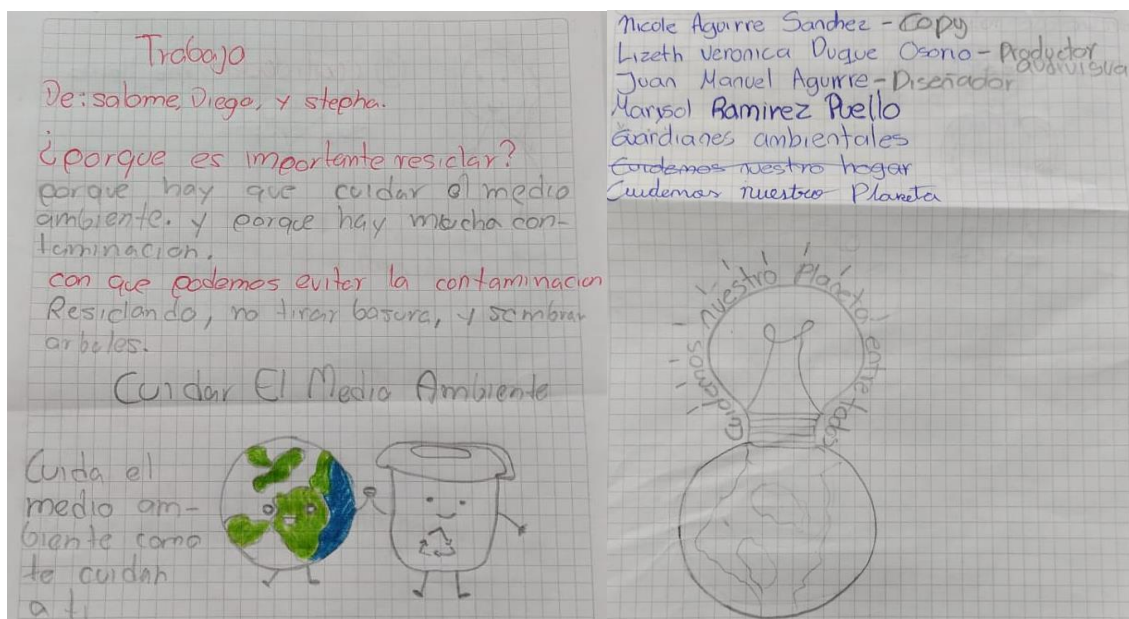 Trabajo
De: salome, Diego, y stepha.
¿porque es importante resiclar?
porque hay que cuidar el medio
ambiente. y porque hay mucha con-
taminacion.
con que podemos evitar la contaminacion
Resiclando, no tirar basura, y sembrar
arboles.
Cuidar El Medio Ambiente
Cuida el
medio am-
biente como
te cuidan
a ti
Nicole Aguirre Sanchez - Copy
Lizeth Veronica Duque Osorio - Productor
audivisua
Juan Manuel Aguirre - Diseñador
Marysol Ramirez Puello
Guardianes ambientales
Cuidemos nuestro hogar
Cuidemos nuestro Planeta
Cuidemos nuestro Planeta entre todos